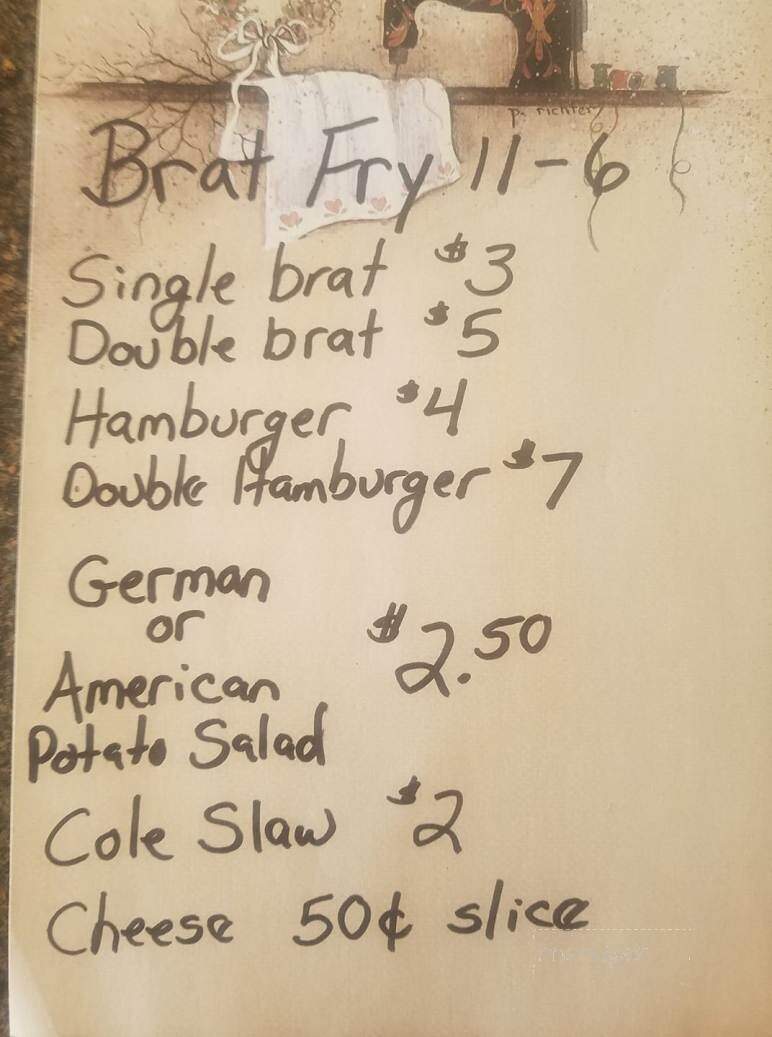 p. richter
Brat Fry 11-6
Single brat $3
Double brat $5
Hamburger $4
Double Hamburger $7
German
or
$2.50
American
Potato Salad
Cole Slaw $2
Cheese 50¢ slice